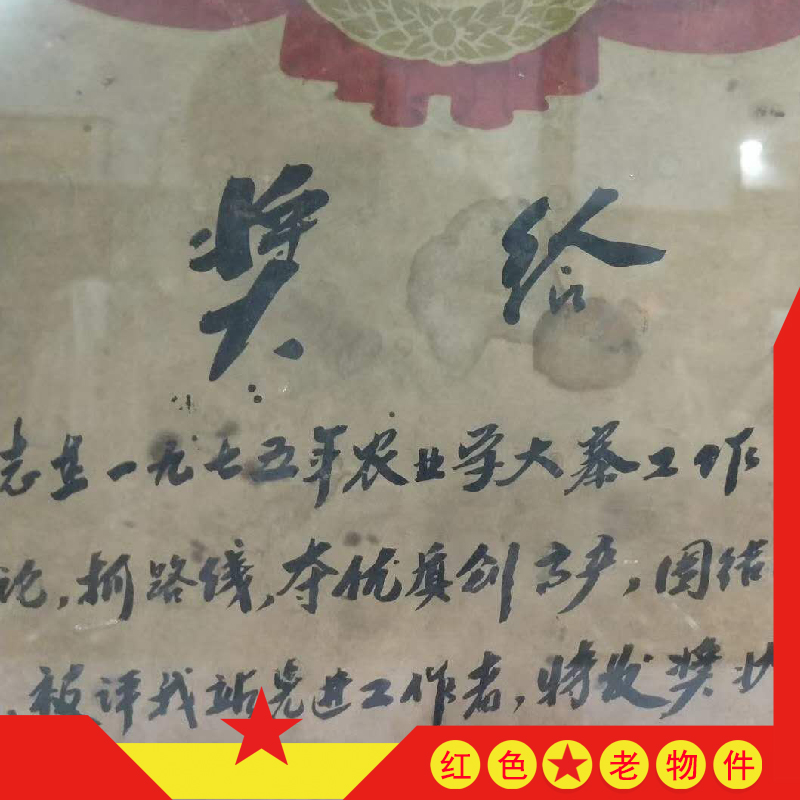 奖给
志在一九七五年农业学大寨工作
论，抓路线，夺优质创高产，团结
，被评我站先进工作者，特发奖状
红色老物件